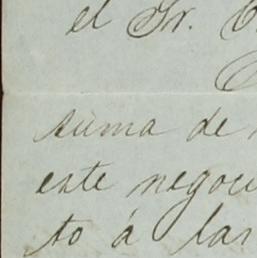 el Sr.
suma de
este negoci
to á las